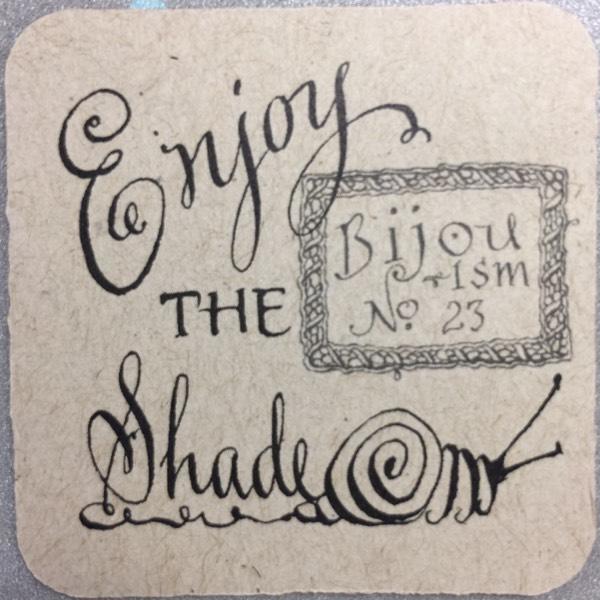 Enjoy
THE
Shade
Bijou
+ Ism
No. 23